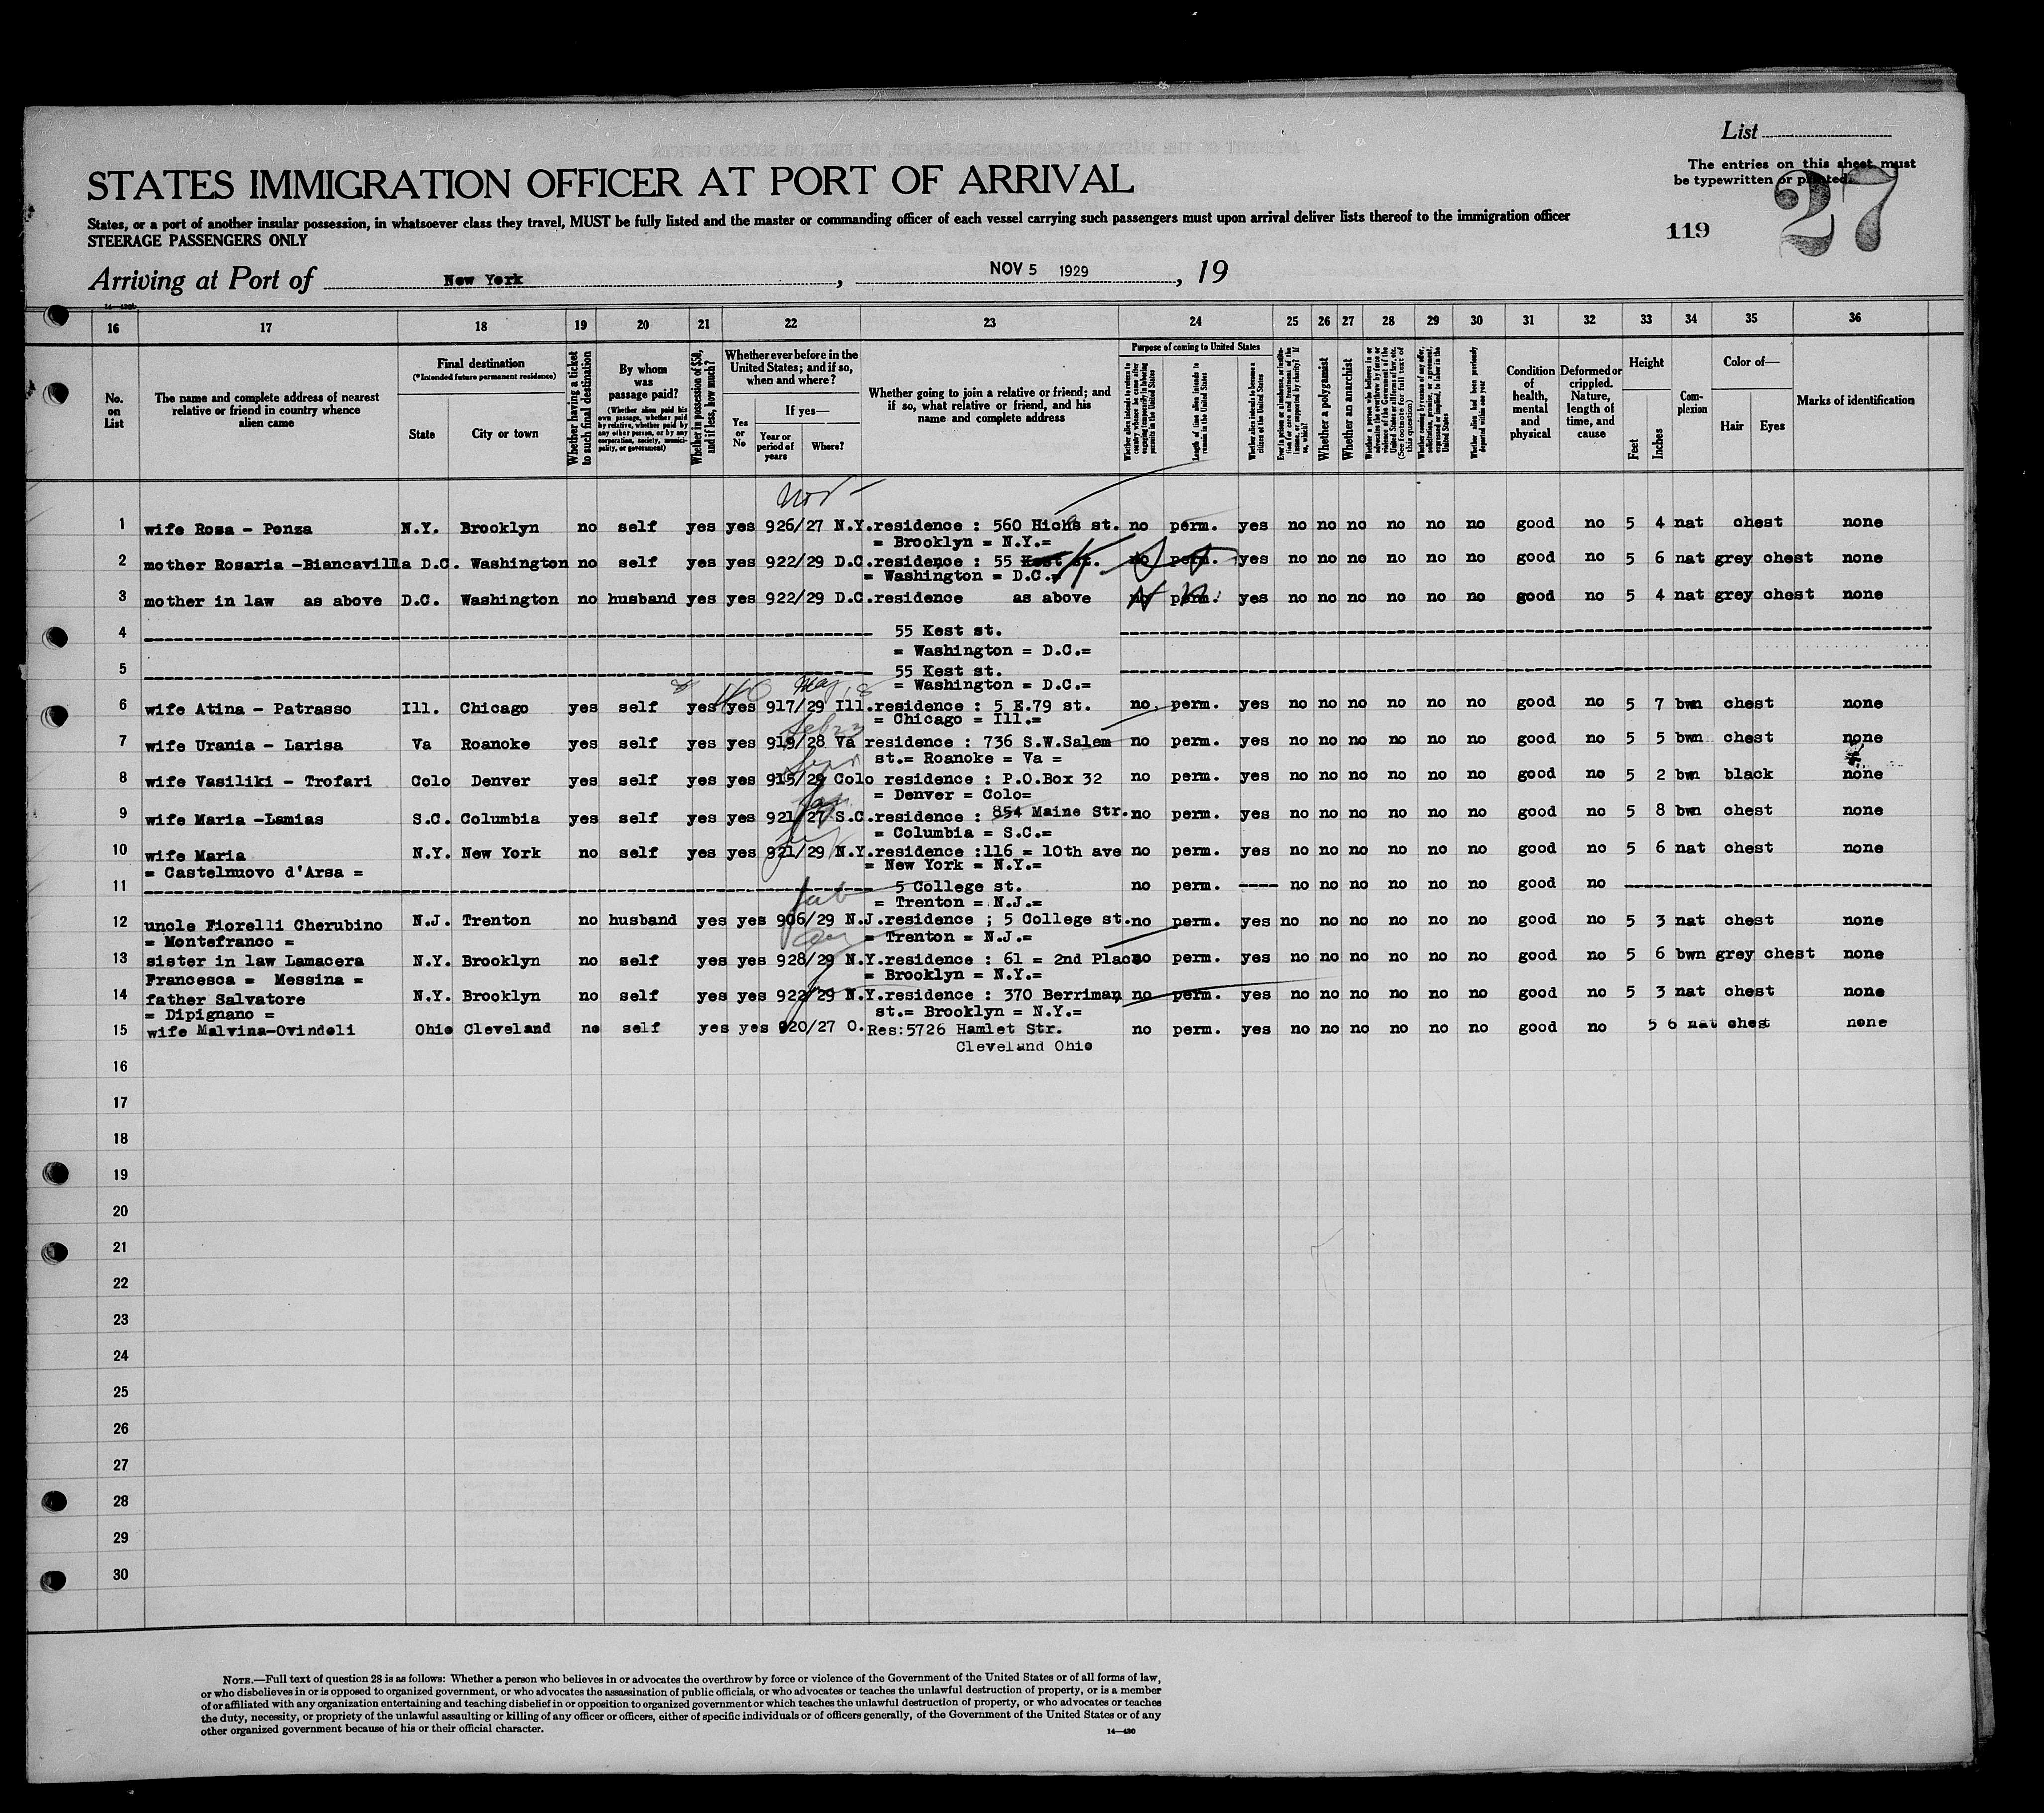 List
The entries on this sheet must
be typewritten or printed.
27
119
STATES IMMIGRATION OFFICER AT PORT OF ARRIVAL
States, or a port of another insular possession, in whatsoever class they travel, MUST be fully listed and the master or commanding officer of each vessel carrying such passengers must upon arrival deliver lists thereof to the immigration officer
STEERAGE PASSENGERS ONLY
Arriving at Port of New York, NOV 5 1929, 19
14—430b
16 17 18 19 20 21 22 23 24 25 26 27 28 29 30 31 32 33 34 35 36
No. on List
The name and complete address of nearest relative or friend in country whence alien came
Final destination
(*Intended future permanent residence)
State
City or town
Whether having a ticket to such final destination
By whom was passage paid?
(Whether alien paid his own passage, whether paid by relative, whether paid by any other person, or by any corporation, society, municipality, or government)
Whether in possession of $50, and if less, how much?
Whether ever before in the United States; and if so, when and where?
Yes or No
If yes—
Year or period of years
Where?
Whether going to join a relative or friend; and if so, what relative or friend, and his name and complete address
Purpose of coming to United States
Whether alien intends to return to country whence he came after engaging temporarily in laboring pursuits in the United States
Length of time alien intends to remain in the United States
Whether alien intends to become a citizen of the United States
Ever in prison or almshouse, or institution for care and treatment of the insane, or supported by charity? If so, which?
Whether a polygamist
Whether an anarchist
Whether a person who believes in or advocates the overthrow by force or violence of the Government of the United States or all forms of law, etc. (See footnote for full text of this question)
Whether coming by reason of any offer, solicitation, promise, or agreement, expressed or implied, to labor in the United States
Whether alien had been previously deported within one year
Condition of health, mental and physical
Deformed or crippled. Nature, length of time, and cause
Height
Feet
Inches
Complexion
Color of—
Hair
Eyes
Marks of identification
Nov
1 wife Rosa - Ponza N.Y. Brooklyn no self yes yes 926/27 N.Y. residence : 560 Hicks st. no perm. yes no no no no no no good no 5 4 nat chest none
= Brooklyn = N.Y.=
2 mother Rosaria -Biancavilla D.C. Washington no self yes yes 922/29 D.C. residence : 55 Kest st. no perm. yes no no no no no no good no 5 6 nat grey chest none
= Washington = D.C.=
3 mother in law as above D.C. Washington no husband yes yes 922/29 D.C. residence as above no perm. yes no no no no no no good no 5 4 nat grey chest none
4 55 Kest st.
= Washington = D.C.=
5 55 Kest st.
= Washington = D.C.=
May
6 wife Atina - Patrasso Ill. Chicago yes self yes yes 917/29 Ill. residence : 5 E.79 st. no perm. yes no no no no no no good no 5 7 bwn chest none
= Chicago = Ill.=
7 wife Urania - Larisa Va Roanoke yes self yes yes 919/28 Va residence : 736 S.W.Salem no perm. yes no no no no no no good no 5 5 bwn chest none
st.= Roanoke = Va =
8 wife Vasiliki - Trofari Colo Denver yes self yes yes 915/29 Colo residence : P.O.Box 32 no perm. yes no no no no no no good no 5 2 bwn black none
= Denver = Colo=
9 wife Maria -Lamias S.C. Columbia yes self yes yes 921/27 S.C. residence : 854 Maine Str. no perm. yes no no no no no no good no 5 8 bwn chest none
= Columbia = S.C.=
10 wife Maria N.Y. New York no self yes yes 921/29 N.Y. residence :116 = 10th ave no perm. yes no no no no no no good no 5 6 nat chest none
= Castelnuovo d'Arsa = = New York = N.Y.=
11 5 College st. no perm. ---- no no no no no no good no
= Trenton = N.J.=
12 uncle Fiorelli Cherubino N.J. Trenton no husband yes yes 906/29 N.J. residence ; 5 College st. no perm. yes no no no no no no good no 5 3 nat chest none
= Montefranco = = Trenton = N.J.=
13 sister in law Lamacera N.Y. Brooklyn no self yes yes 928/29 N.Y. residence : 61 = 2nd Place no perm. yes no no no no no no good no 5 6 bwn grey chest none
Francesca = Messina = = Brooklyn = N.Y.=
14 father Salvatore N.Y. Brooklyn no self yes yes 922/29 N.Y. residence : 370 Berriman no perm. yes no no no no no no good no 5 3 nat chest none
= Dipignano = st.= Brooklyn = N.Y.=
15 wife Malvina-Ovindoli Ohio Cleveland no self yes yes 920/27 O. Res:5726 Hamlet Str. no perm. yes no no no no no no good no 5 6 nat chest none
Cleveland Ohio
16
17
18
19
20
21
22
23
24
25
26
27
28
29
30
NOTE.—Full text of question 28 is as follows: Whether a person who believes in or advocates the overthrow by force or violence of the Government of the United States or of all forms of law,
or who disbelieves in or is opposed to organized government, or who advocates the assassination of public officials, or who advocates or teaches the unlawful destruction of property, or is a member
of or affiliated with any organization entertaining and teaching disbelief in or opposition to organized government or which teaches the unlawful destruction of property, or who advocates or teaches
the duty, necessity, or propriety of the unlawful assaulting or killing of any officer or officers, either of specific individuals or of officers generally, of the Government of the United States or of any
other organized government because of his or their official character.
14—430